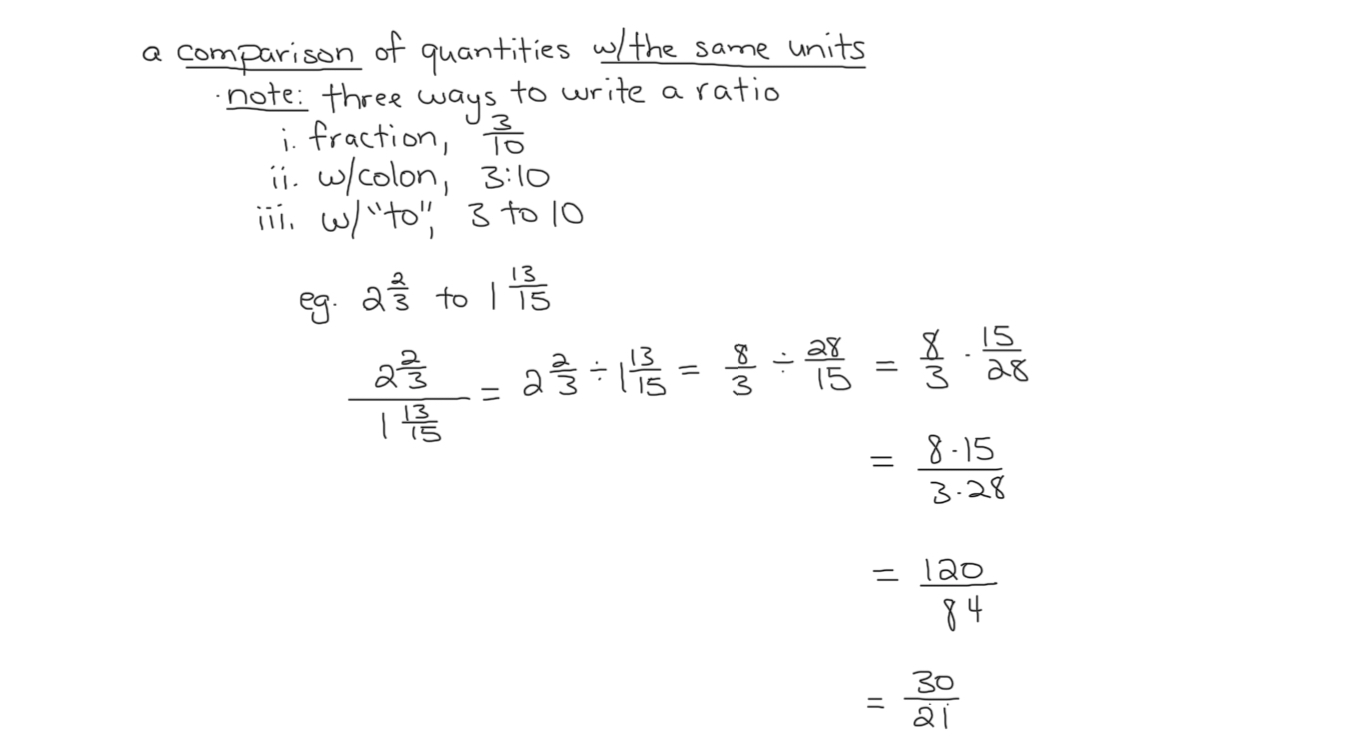 a comparison of quantities w/the same units
·note: three ways to write a ratio
i. fraction, 3/10
ii. w/colon, 3:10
iii. w/"to", 3 to 10
eg. 2 2/3 to 1 13/15
(2 2/3)/(1 13/15) = 2 2/3 ÷ 1 13/15 = 8/3 ÷ 28/15 = 8/3 · 15/28
= (8·15)/(3·28)
= 120/84
= 30/21